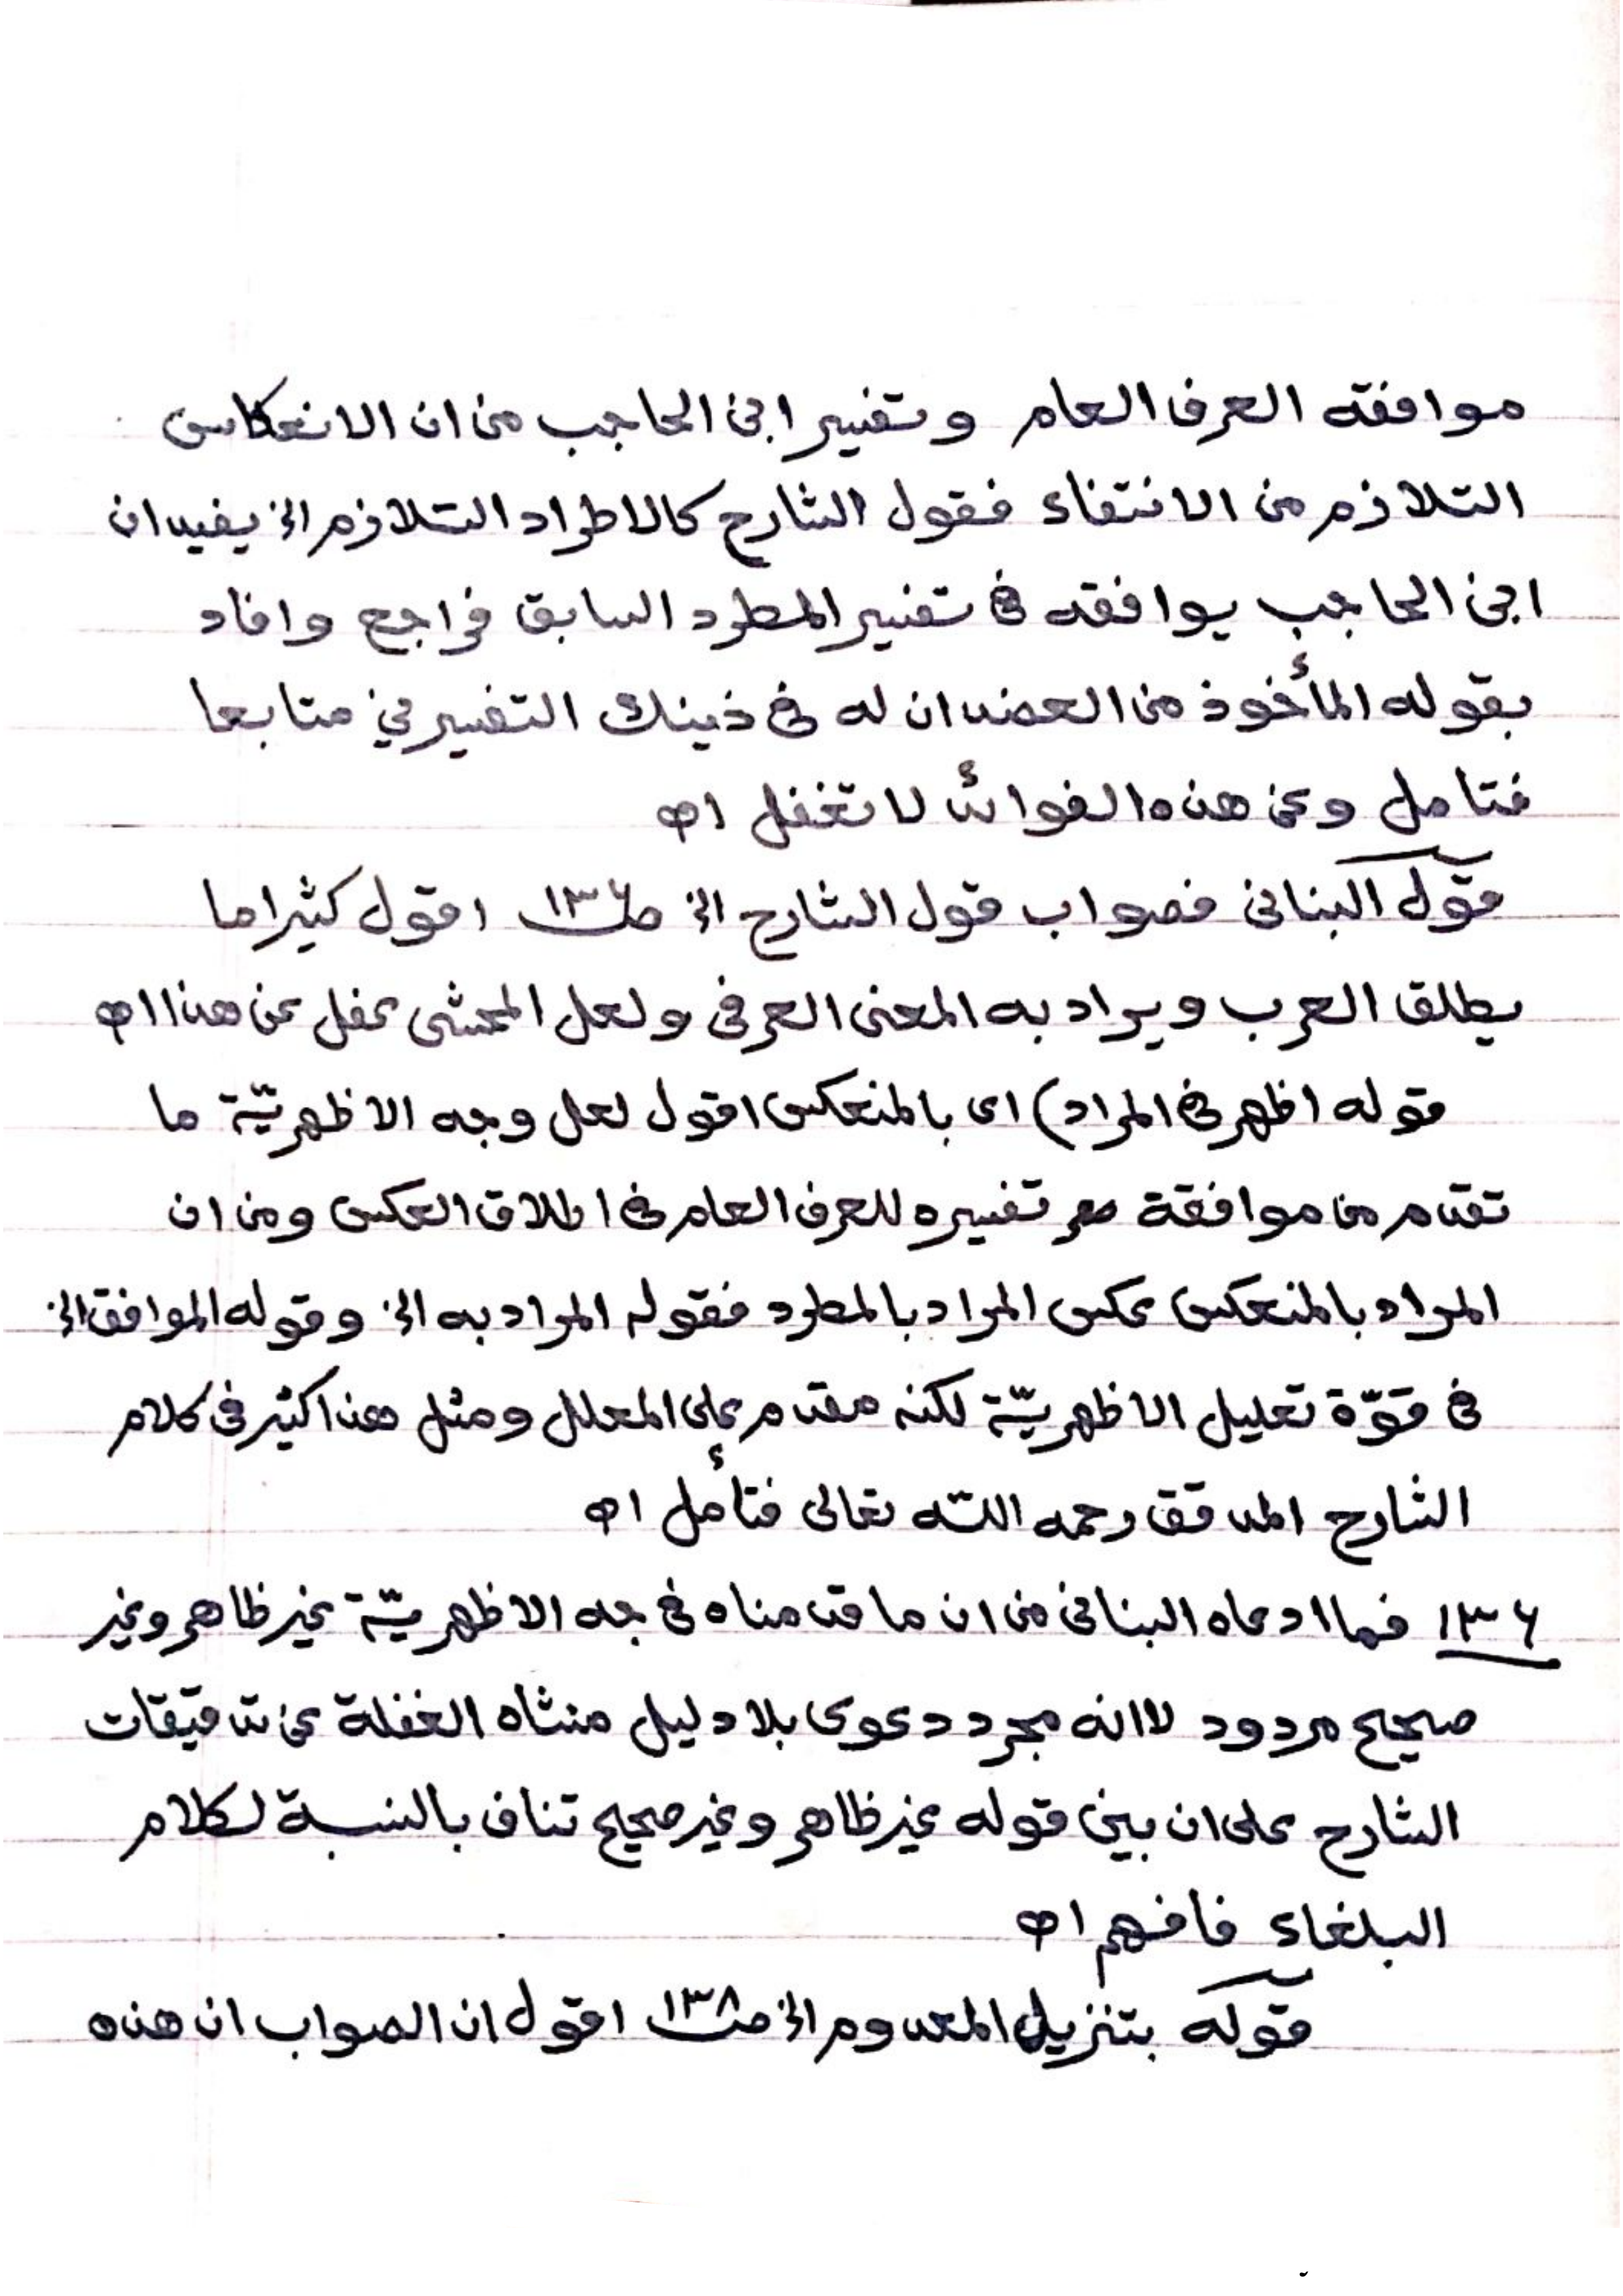 موافقه العرف العام وتفسير ابن الحاجب من ان الانعكاس
التلازم من الانتفاء فقول الشارح كالاطراد التلازم الخ يفيد ان
ابن الحاجب يوافقه في تفسير المطرد السابق فراجع وافاد
بقوله المأخوذ من العضد ان له في ذينك التفسيرين متابعا
فتامل وعن هذه الفوائد لا تغفل اه
قول البناني فصواب قول الشارح الخ ص١٣٦ اقول كثيرا ما
يطلق العرب ويراد به المعنى العرفي ولعل المحشى غفل عن هذا اه
قوله اظهر في المراد) اى بالمنعكس اقول لعل وجه الاظهريّة ما
تقدم من موافقة تفسيره للعرف العام في اطلاق العكس ومن ان
المراد بالمنعكس عكس المراد بالمطرد فقوله المراد به الخ وقوله الموافق الخ
في قوّة تعليل الاظهريّة لكنه مقدم على المعلل ومثل هذا كثير في كلام
الشارح المدقق رحمه اللّه تعالى فتأمل اه
١٣٦ فما ادعاه البناني من ان ما قدمناه في جه الاظهريّة غير ظاهر وغير
صحيح مردود لاانه مجرد دعوى بلا دليل منشاه الغفلة عن تدقيقات
الشارح على ان بين قوله غير ظاهر وغير صحيح تناف بالنسبة لكلام
البلغاء فافهم اه
قوله بتنزيل المعدوم الخ ص١٣٨ اقول ان الصواب ان هذه